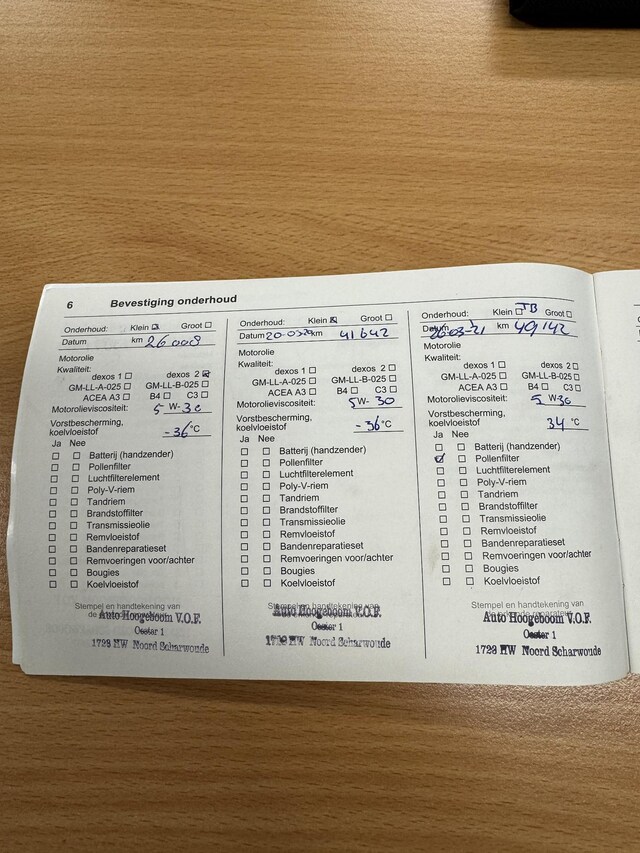 6 Bevestiging onderhoud
Onderhoud: Klein Groot
Datum km 26009
Motorolie
Kwaliteit:
dexos 1 dexos 2
GM-LL-A-025 GM-LL-B-025
ACEA A3 B4 C3
Motorolieviscositeit: 5 W-30
Vorstbescherming,
koelvloeistof -36 °C
Ja Nee
Batterij (handzender)
Pollenfilter
Luchtfilterelement
Poly-V-riem
Tandriem
Brandstoffilter
Transmissieolie
Remvloeistof
Bandenreparatieset
Remvoeringen voor/achter
Bougies
Koelvloeistof
Stempel en handtekening van
Auto Hoogeboom V.O.F.
Oester 1
1723 HW Noord Scharwoude
Onderhoud: Klein Groot
Datum km 41642
Motorolie
Kwaliteit:
dexos 1 dexos 2
GM-LL-A-025 GM-LL-B-025
ACEA A3 B4 C3
Motorolieviscositeit: 5W-30
Vorstbescherming,
koelvloeistof -36 °C
Ja Nee
Batterij (handzender)
Pollenfilter
Luchtfilterelement
Poly-V-riem
Tandriem
Brandstoffilter
Transmissieolie
Remvloeistof
Bandenreparatieset
Remvoeringen voor/achter
Bougies
Koelvloeistof
Stempel en handtekening van
Auto Hoogeboom V.O.F.
Oester 1
HW Noord Scharwoude
TB
Onderhoud: Klein Groot
Datum 26-03-21 km 49142
Motorolie
Kwaliteit:
dexos 1 dexos 2
GM-LL-A-025 GM-LL-B-025
ACEA A3 B4 C3
Motorolieviscositeit: 5 W30
Vorstbescherming,
koelvloeistof 34 °C
Ja Nee
Batterij (handzender)
Pollenfilter
Luchtfilterelement
Poly-V-riem
Tandriem
Brandstoffilter
Transmissieolie
Remvloeistof
Bandenreparatieset
Remvoeringen voor/achter
Bougies
Koelvloeistof
Stempel en handtekening van
Auto Hoogeboom V.O.F.
Oester 1
1723 HW Noord Scharwoude